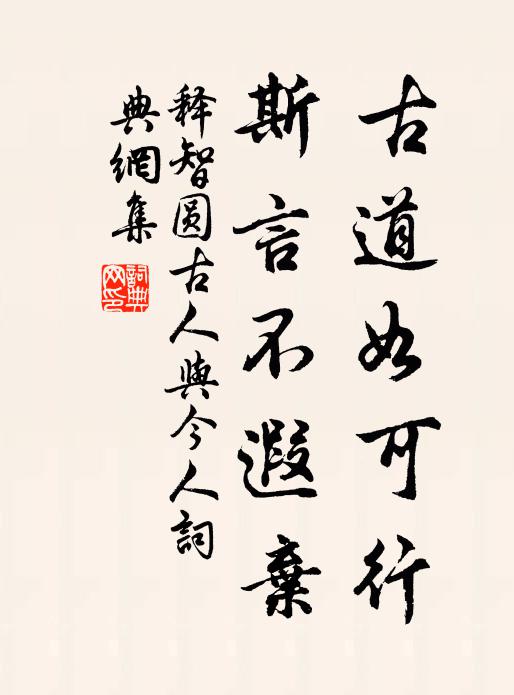 古道如可行
斯言不遐棄
释智圆古人與今人詞
典網集
詞典网印